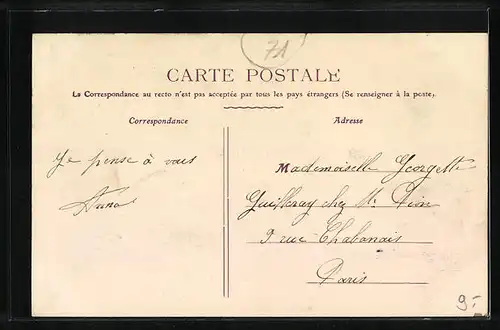 71
CARTE POSTALE
La Correspondance au recto n'est pas acceptée par tous les pays étrangers (Se renseigner à la poste).
Correspondance
Adresse
Je pense à vous
Mademoiselle Georgette
chez Mr.
9 rue Chabanais
Paris
9.-